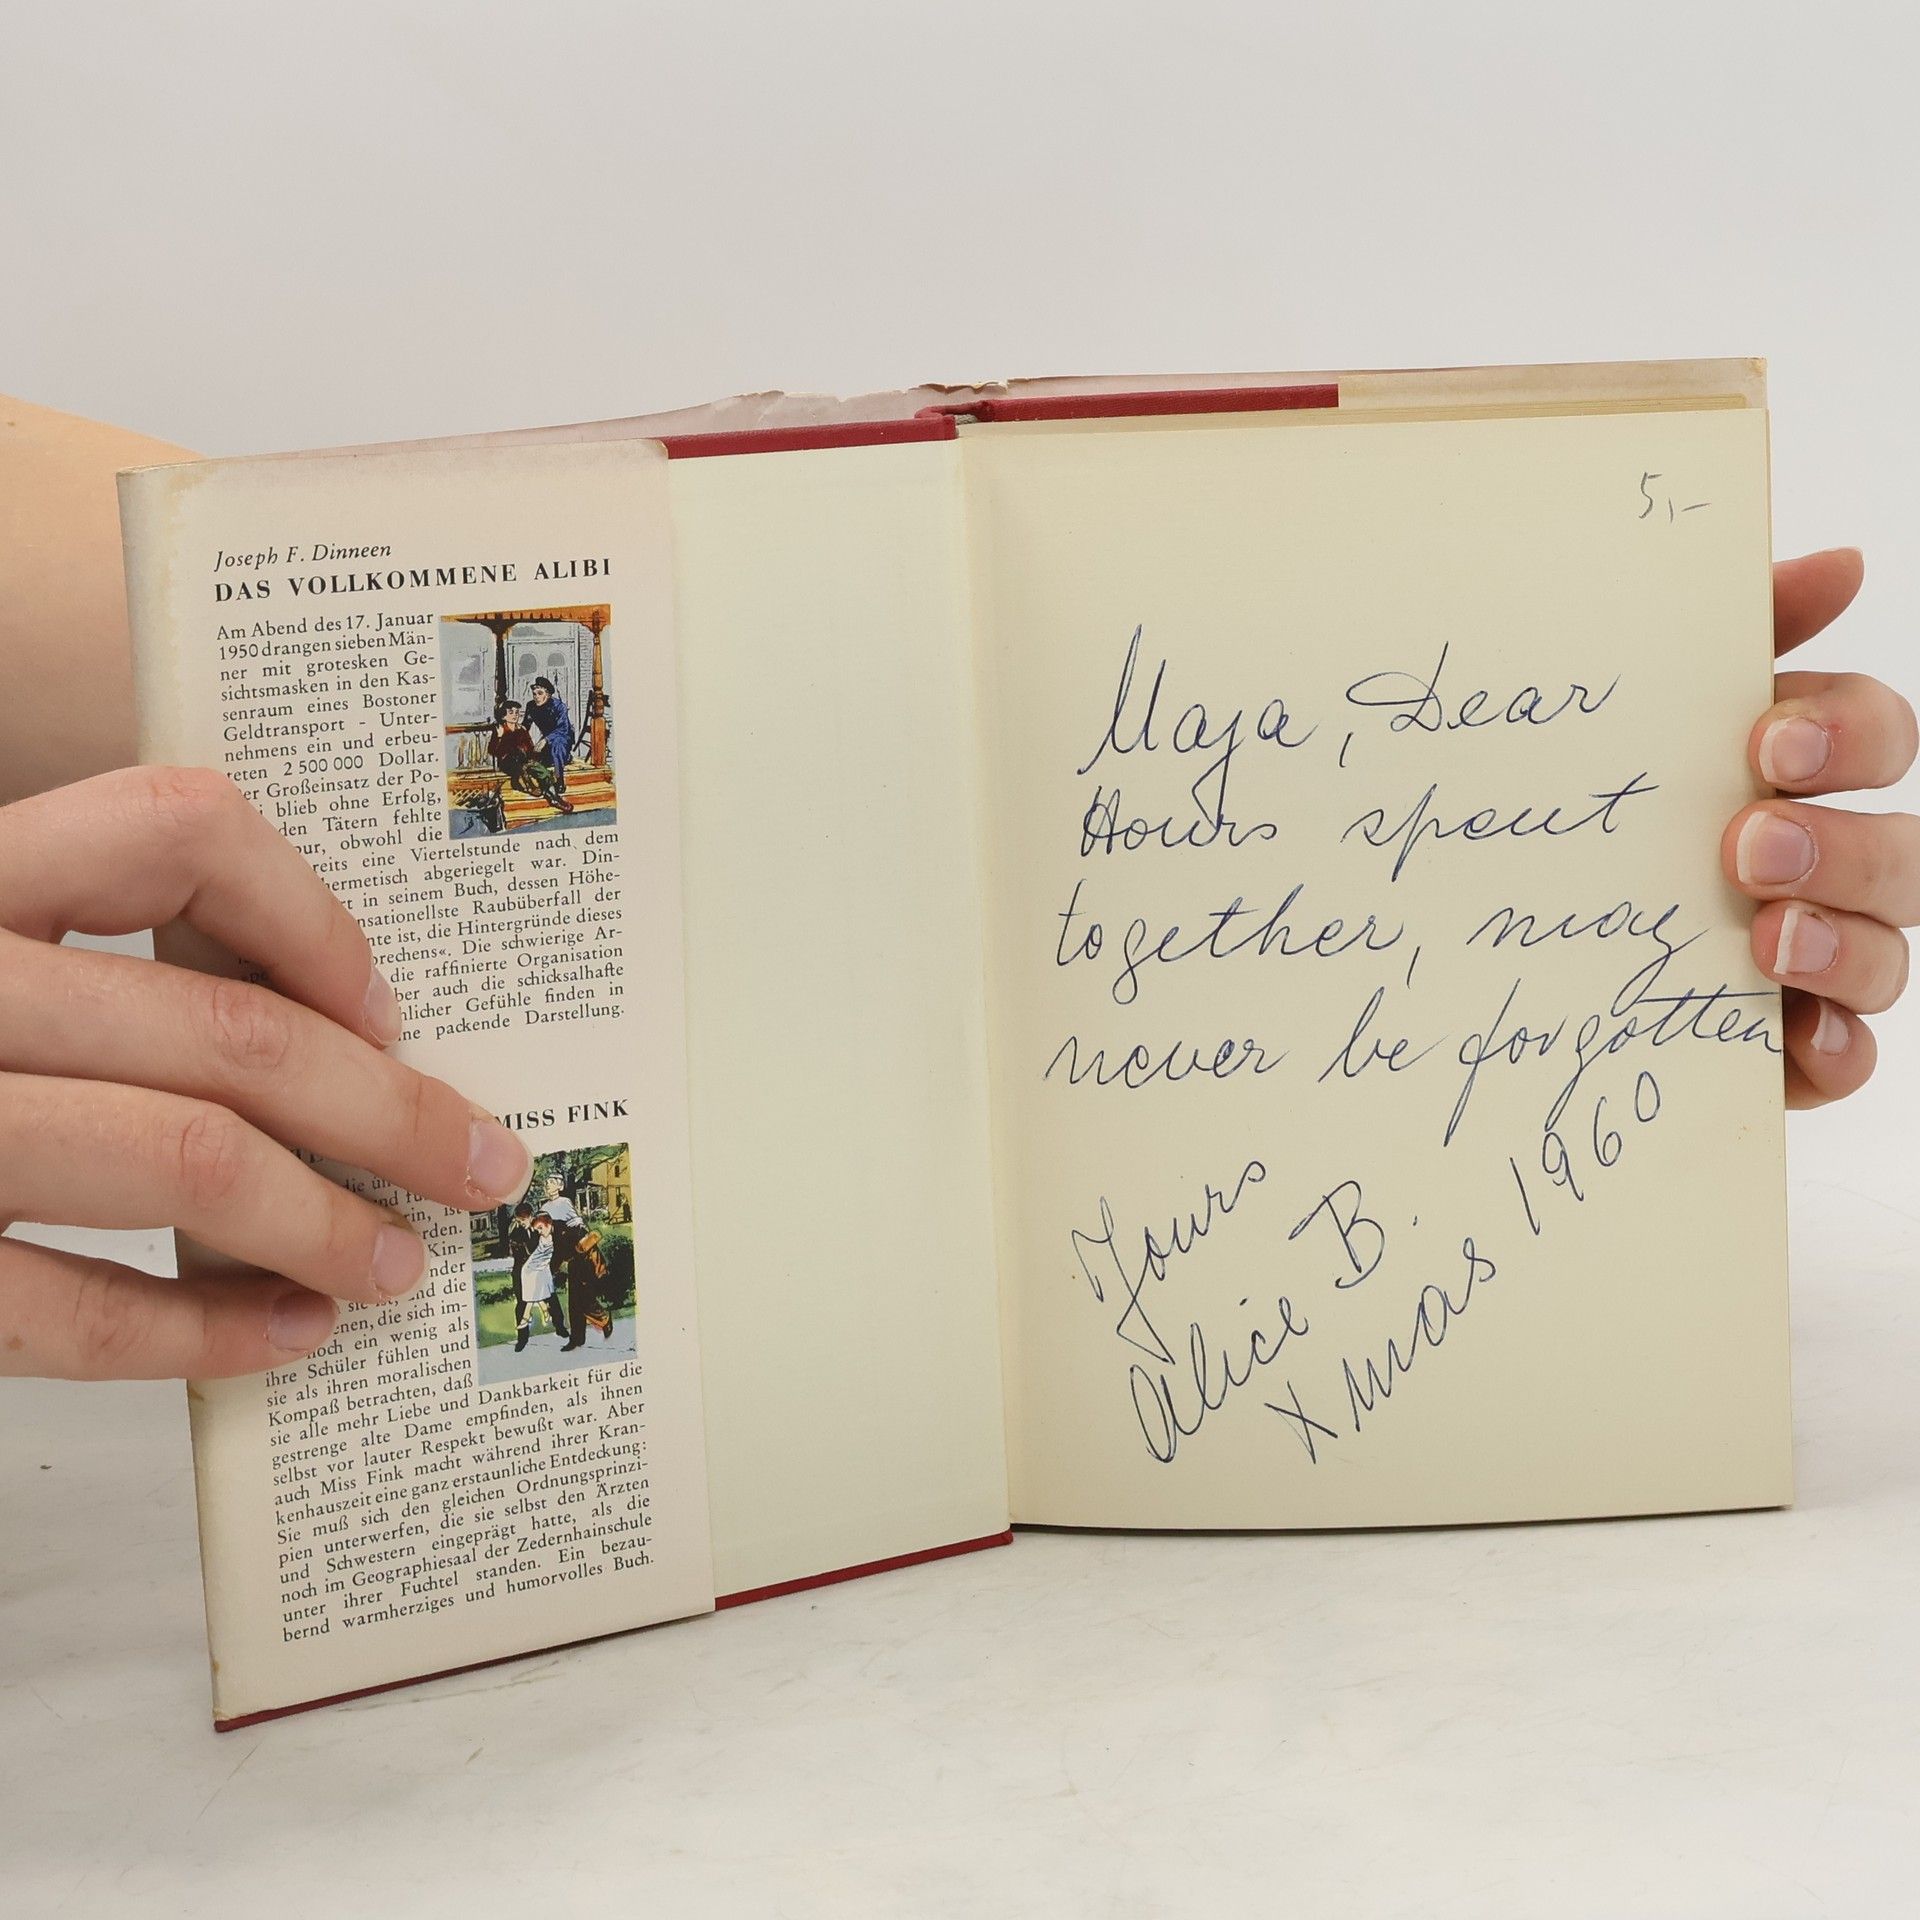 Joseph F. Dinneen
DAS VOLLKOMMENE ALIBI
Am Abend des 17. Januar
1950 drangen sieben Män-
ner mit grotesken Ge-
sichtsmasken in den Kas-
senraum eines Bostoner
Geldtransport - Unter-
nehmens ein und erbeu-
teten 2 500 000 Dollar.
er Großeinsatz der Po-
i blieb ohne Erfolg,
den Tätern fehlte
pur, obwohl die
reits eine Viertelstunde nach dem
hermetisch abgeriegelt war. Din-
rt in seinem Buch, dessen Höhe-
nsationellste Raubüberfall der
nte ist, die Hintergründe dieses
brechens«. Die schwierige Ar-
die raffinierte Organisation
ber auch die schicksalhafte
hlicher Gefühle finden in
ne packende Darstellung.
MISS FINK
die
nd
rin, ist
rden.
Kin-
nder
sie ist, und die
enen, die sich im-
noch ein wenig als
ihre Schüler fühlen und
sie als ihren moralischen
Kompaß betrachten, daß
sie alle mehr Liebe und Dankbarkeit für die
gestrenge alte Dame empfinden, als ihnen
selbst vor lauter Respekt bewußt war. Aber
auch Miss Fink macht während ihrer Kran-
kenhauszeit eine ganz erstaunliche Entdeckung:
Sie muß sich den gleichen Ordnungsprinzi-
pien unterwerfen, die sie selbst den Ärzten
und Schwestern eingeprägt hatte, als die
noch im Geographiesaal der Zedernhainschule
unter ihrer Fuchtel standen. Ein bezau-
bernd warmherziges und humorvolles Buch.
5,-
Maja, Dear
Hours spent
together, may
never be forgotten
Yours
Alice B.
Xmas 1960